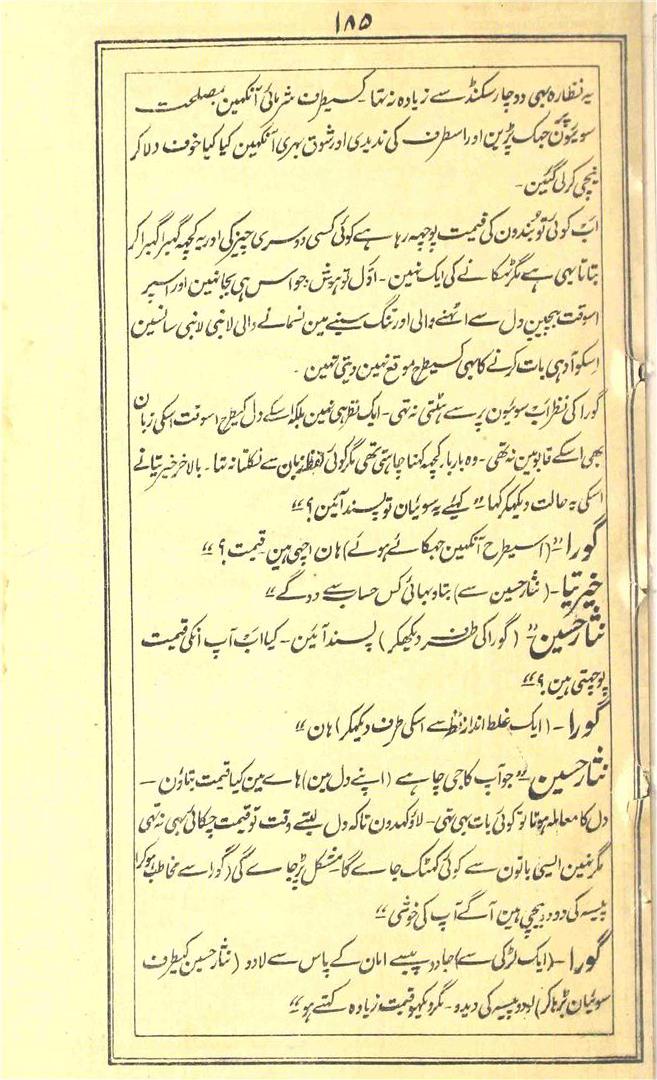 ۱۸۵
یہ نظارہ بھی دو چار سکنڈ سے زیادہ نہ تھا ۔ کسیطرف شرمائی آنکھین بمصلحت
سویُون پر جھک پڑین اور اسطرف کی ندیدی اور شوق بھری آنکھین کیا کیا خوف دلا کر
نیچی کر لی گئین ۔
اب کوئی تو بُندون کی قیمت پوچھہ رہا ہے کوئی کسی دوسری چیز کی اور یہ کچھہ گھبرا گھبرا کر
بتاتا بھی ہے مگر ٹھکانے کی ایک نہین ۔ اوّل تو ہوش حواس ہی بجا نہین اور اسپر
اسوقت بیچین دل سے اٹھنے والی اور تنگ سینے مین نسمانے والی لانبی لانبی سانسین
اسکو آدھی بات کرنے کا بھی کسیطرح موقع نہین دیتی تھین ۔
گورا کی نظر اب سویُون پر سے ہٹتی نہ تھی ۔ ایک نظر ہی نہین بلکہ اسکے دل کیطرح اسوقت اسکی زبان
بھی اسکے قابو مین نہ تھی ۔ وہ بار بار کچھہ کہنا چاہتی تھی مگر کوئی لفظ زبان سے نکلتا نہ تھا ۔ بالآخر خیرتیا نے
اسکی یہ حالت دیکھکر کہا ”کہئے یہ سوئیان تو پسند آئین؟“
گورا ”(اسیطرح آنکھین جھکائے ہوئے) ہان اچھی ہین قیمت؟“
خیرتیا ۔ (نثار حسین سے) بتاو بھائی کس حساب سے دو گے“
نثار حسین ”(گورا کی طرف دیکھکر) پسند آئین ۔ کیا اب آپ انکی قیمت
پوچھتی ہین؟“
گورا ۔ (ایک غلط انداز نظر سے اسکی طرف دیکھکر) ہان“
نثار حسین ”جو آپ کا جی چاہے (اپنے دل مین) ہاے مین کیا قیمت بتاوُن ۔
دل کا معاملہ ہوتا تو کوئی بات بھی تھی ۔ لاؤ کہدون تاکہ دل لیتے وقت تو قیمت چکائی بھی نہ تھی
مگر نہین ایسی باتون سے کوئی کھٹک جاے گا مشکل پڑ جاے گی (گورا سے مخاطب ہو کر)
پیسہ کی دو دو بیچی ہین آگے آپ کی خوشی“
گورا ۔ (ایک لڑکی سے) جا دو پیسے امان کے پاس سے لا دو (نثار حسین کیطرف
سوئیان بڑھا کر) لو دو پیسہ کی دیدو ۔ مگر دیکھو قیمت زیادہ کہتے ہو“